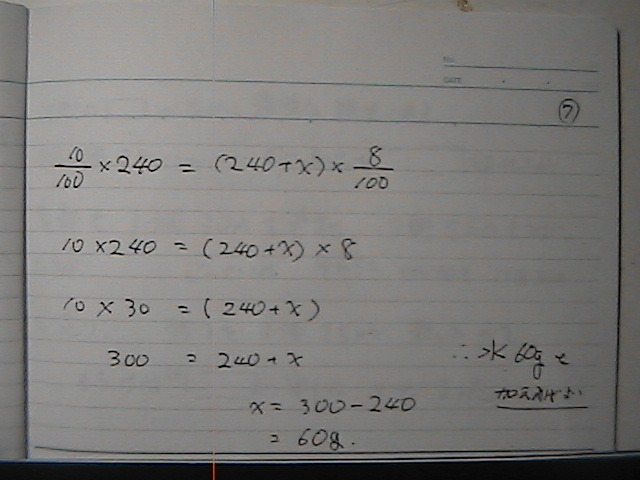 NO.
DATE
⑦
10/100 × 240 = (240 + x) × 8/100
10 × 240 = (240 + x) × 8
10 × 30 = (240 + x)
300 = 240 + x
x = 300 - 240
= 60g.
∴ 水 60g を
加えればよい